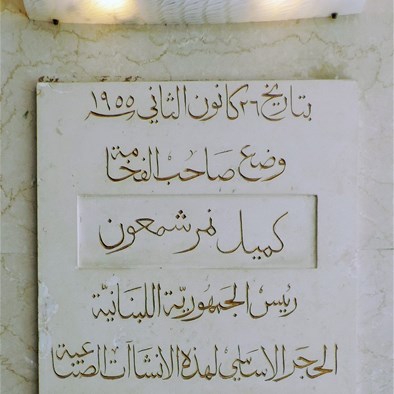 بتاريخ ٢٦ كانون الثاني ١٩٥٥
وضع صاحب الفخامة
كميل نمر شمعون
رئيس الجمهوريّة اللبنانيّة
الحجر الاساسي لهذه الانشاآت الصناعية